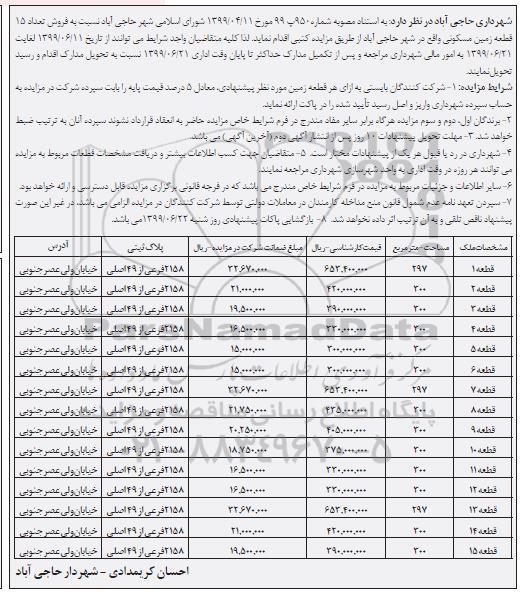 شهرداری حاجی آباد در نظر دارد: به استناد مصوبه شماره ۹۵۰پ ۹۹ مورخ ۱۳۹۹/۰۴/۱۱ شورای اسلامی شهر حاجی آباد نسبت به فروش تعداد ۱۵
قطعه زمین مسکونی واقع در شهر حاجی آباد از طریق مزایده کتبی اقدام نماید. لذا کلیه متقاضیان واجد شرایط می توانند از تاریخ ۱۳۹۹/۰۶/۱۱ لغایت
۱۳۹۹/۰۶/۲۱ به امور مالی شهرداری مراجعه و پس از تکمیل مدارک حداکثر تا پایان وقت اداری ۱۳۹۹/۰۶/۲۱ نسبت به تحویل مدارک اقدام و رسید
تحویل نمایند.
شرایط مزایده: ۱- شرکت کنندگان بایستی به ازای هر قطعه زمین مورد نظر پیشنهادی، معادل ۵ درصد قیمت پایه را بابت سپرده شرکت در مزایده به
حساب سپرده شهرداری واریز و اصل رسید تأیید شده را در پاکت ارائه نماید.
۲- برندگان اول، دوم و سوم مزایده هرگاه برابر سایر مفاد مندرج در فرم شرایط خاص مزایده حاضر به انعقاد قرارداد نشوند سپرده آنان به ترتیب ضبط
خواهد شد. ۳- مهلت تحویل پیشنهادات ۱۰ روز پس از انتشار آگهی دوم (آخرین آگهی) می باشد.
۴- شهرداری در رد یا قبول هر یک از پیشنهادات مختار است. ۵- متقاضیان جهت کسب اطلاعات بیشتر و دریافت مشخصات قطعات مربوط به مزایده
می توانند هر روزه در وقت اداری به واحد شهرسازی شهرداری مراجعه نمایند.
۶- سایر اطلاعات و جزئیات مربوط به مزایده در فرم شرایط خاص مندرج می باشد که در فرجه قانونی برگزاری مزایده قابل دسترسی و ارائه خواهد بود.
۷- سپردن تعهد نامه عدم شمول قانون منع مداخله کارمندان در معاملات دولتی توسط شرکت کنندگان در مزایده الزامی می باشد، در غیر این صورت
پیشنهاد ناقص تلقی و به آن ترتیب اثر داده نخواهد شد. ۸- بازگشایی پاکات پیشنهادی روز شنبه ۱۳۹۹/۰۶/۲۲می باشد.
مشخصات ملک مساحت-مترمربع قیمت کارشناسی-ریال مبلغ ضمانت شرکت در مزایده-ریال پلاک ثبتی آدرس
قطعه۱ ۲۹۷ ۶۵۳,۴۰۰,۰۰۰ ۳۲,۶۷۰,۰۰۰ ۲۱۵۸فرعی از ۴۹اصلی خیابان ولی عصر جنوبی
قطعه۲ ۳۰۰ ۴۲۰,۰۰۰,۰۰۰ ۲۱,۰۰۰,۰۰۰ ۲۱۵۸فرعی از ۴۹اصلی خیابان ولی عصر جنوبی
قطعه۳ ۳۰۰ ۳۹۰,۰۰۰,۰۰۰ ۱۹,۵۰۰,۰۰۰ ۲۱۵۸فرعی از ۴۹اصلی خیابان ولی عصر جنوبی
قطعه۴ ۳۰۰ ۳۳۰,۰۰۰,۰۰۰ ۱۶,۵۰۰,۰۰۰ ۲۱۵۸فرعی از ۴۹اصلی خیابان ولی عصر جنوبی
قطعه۵ ۳۰۰ ۳۰۰,۰۰۰,۰۰۰ ۱۵,۰۰۰,۰۰۰ ۲۱۵۸فرعی از ۴۹اصلی خیابان ولی عصر جنوبی
قطعه۶ ۳۰۰ ۳۰۰,۰۰۰,۰۰۰ ۱۵,۰۰۰,۰۰۰ ۲۱۵۸فرعی از ۴۹اصلی خیابان ولی عصر جنوبی
قطعه۷ ۲۹۷ ۶۵۳,۴۰۰,۰۰۰ ۳۲,۶۷۰,۰۰۰ ۲۱۵۸فرعی از ۴۹اصلی خیابان ولی عصر جنوبی
قطعه۸ ۳۰۰ ۴۳۵,۰۰۰,۰۰۰ ۲۱,۷۵۰,۰۰۰ ۲۱۵۸فرعی از ۴۹اصلی خیابان ولی عصر جنوبی
قطعه۹ ۳۰۰ ۴۰۵,۰۰۰,۰۰۰ ۲۰,۲۵۰,۰۰۰ ۲۱۵۸فرعی از ۴۹اصلی خیابان ولی عصر جنوبی
قطعه۱۰ ۳۰۰ ۳۷۵,۰۰۰,۰۰۰ ۱۸,۷۵۰,۰۰۰ ۲۱۵۸فرعی از ۴۹اصلی خیابان ولی عصر جنوبی
قطعه۱۱ ۳۰۰ ۳۳۰,۰۰۰,۰۰۰ ۱۶,۵۰۰,۰۰۰ ۲۱۵۸فرعی از ۴۹اصلی خیابان ولی عصر جنوبی
قطعه۱۲ ۳۰۰ ۳۳۰,۰۰۰,۰۰۰ ۱۶,۵۰۰,۰۰۰ ۲۱۵۸فرعی از ۴۹اصلی خیابان ولی عصر جنوبی
قطعه۱۳ ۲۹۷ ۶۵۳,۴۰۰,۰۰۰ ۳۲,۶۷۰,۰۰۰ ۲۱۵۸فرعی از ۴۹اصلی خیابان ولی عصر جنوبی
قطعه۱۴ ۳۰۰ ۴۲۰,۰۰۰,۰۰۰ ۲۱,۰۰۰,۰۰۰ ۲۱۵۸فرعی از ۴۹اصلی خیابان ولی عصر جنوبی
قطعه۱۵ ۳۰۰ ۳۹۰,۰۰۰,۰۰۰ ۱۹,۵۰۰,۰۰۰ ۲۱۵۸فرعی از ۴۹اصلی خیابان ولی عصر جنوبی
احسان کریمدادی - شهردار حاجی آباد
ParsNamadData
پایگاه اطلاع رسانی مناقصه و مزایده